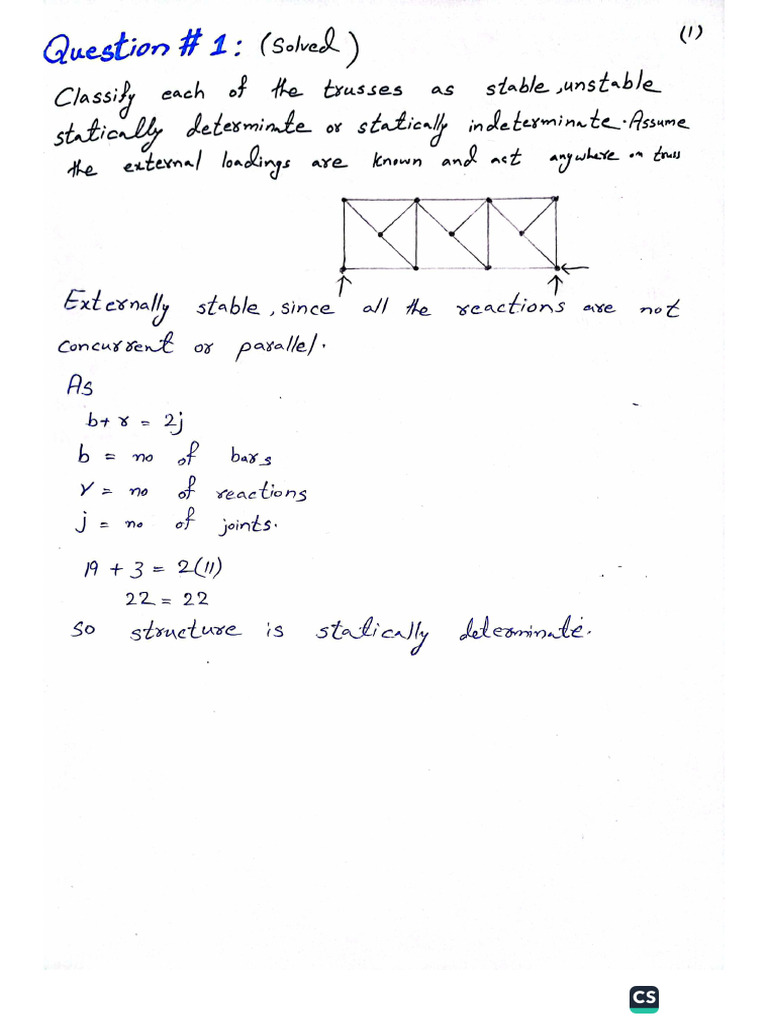 Question # 1: (Solved)
(1)
Classify each of the trusses as stable, unstable
statically determinate or statically indeterminate. Assume
the external loadings are known and act anywhere on truss
Externally stable, since all the reactions are not
concurrent or parallel.
As
b+r = 2j
b = no of bars
r = no of reactions
j = no of joints.
19 + 3 = 2(11)
22 = 22
So structure is statically determinate.
CS